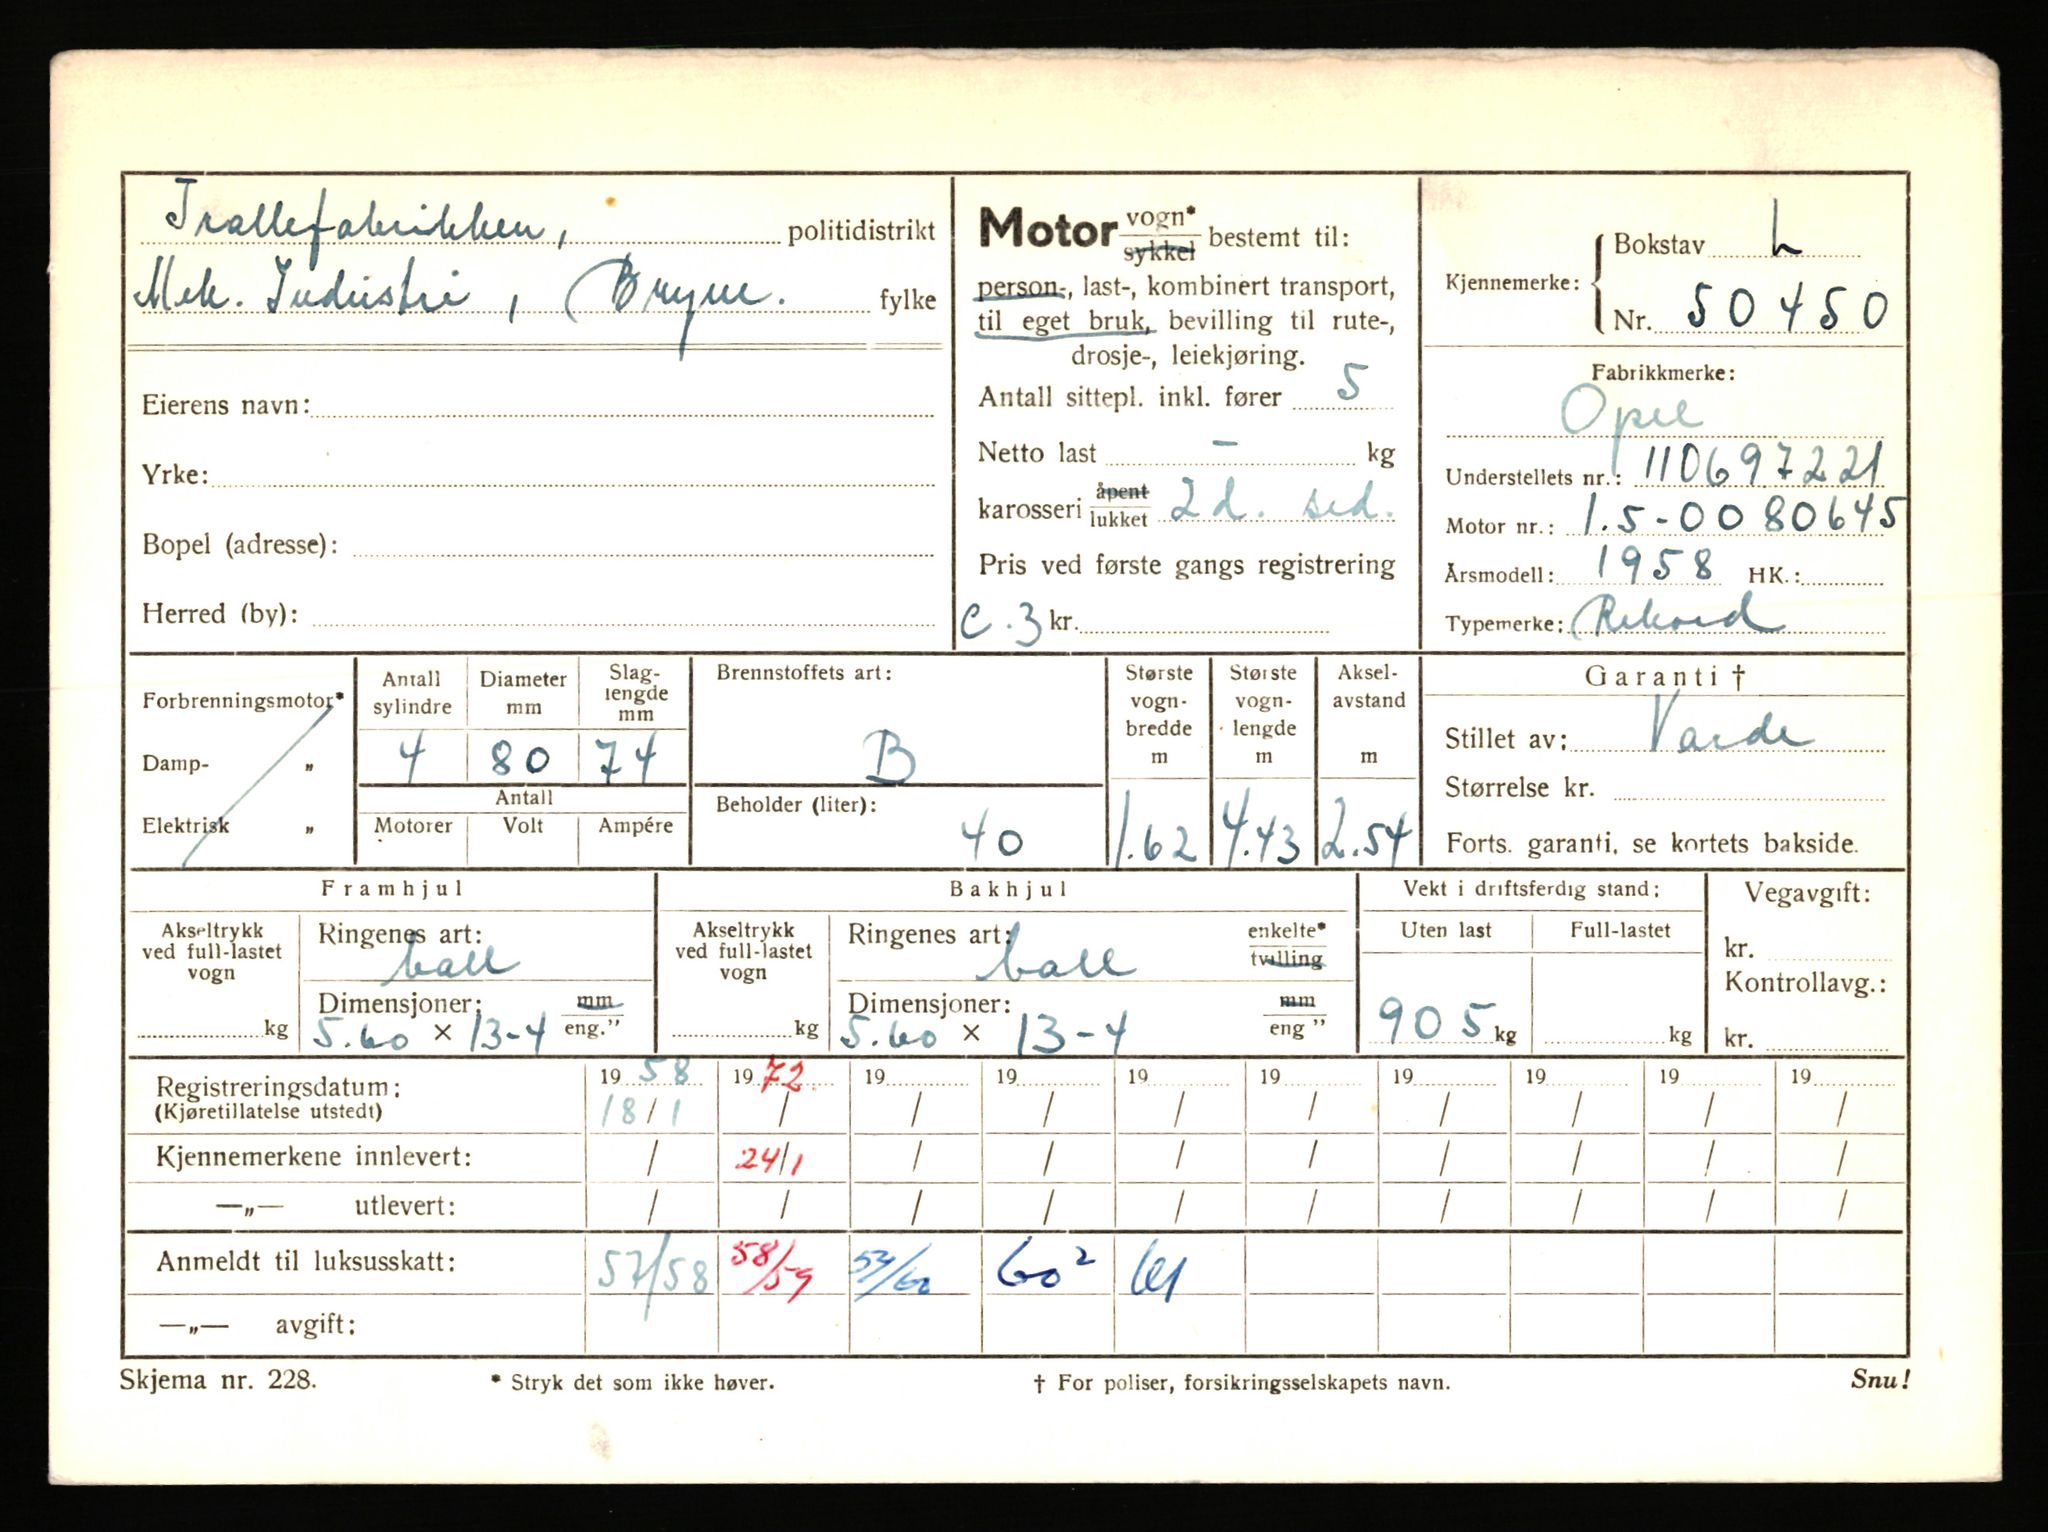 Trallefabrikken, politidistrikt
Mek. Industri, Bryne. fylke
Eierens navn:
Yrke:
Bopel (adresse):
Herred (by):
Motor vogn* sykkel bestemt til:
person-, last-, kombinert transport,
til eget bruk, bevilling til rute-,
drosje-, leiekjøring.
Antall sittepl. inkl. fører 5
Netto last - kg
karosseri åpent lukket 2 d. sed.
Pris ved første gangs registrering
c.3 kr.
Kjennemerke: Bokstav L
Nr. 50450
Fabrikkmerke:
Opel
Understellets nr.: 110697221
Motor nr.: 1.5-0080645
Årsmodell: 1958 HK.:
Typemerke: Rekord
Forbrenningsmotor*
Damp- „
Elektrisk „
Antall sylindre Diameter mm Slag-lengde mm
4 80 74
Antall
Motorer Volt Ampére
Brennstoffets art:
B
Beholder (liter):
40
Største vogn-bredde m
1.62
Største vogn-lengde m
4.43
Aksel-avstand m
2.54
Garanti †
Stillet av: Varde
Størrelse kr.
Forts. garanti, se kortets bakside.
Framhjul
Akseltrykk ved full-lastet vogn
kg
Ringenes art:
ball
Dimensjoner: mm
5.60 × 13-4 eng."
Bakhjul
Akseltrykk ved full-lastet vogn
kg
Ringenes art: enkelte* tvilling
ball
Dimensjoner: mm
5.60 × 13-4 eng "
Vekt i driftsferdig stand:
Uten last Full-lastet
905 kg kg
Vegavgift:
kr.
Kontrollavg.:
kr.
Registreringsdatum: 19 58 19 72. 19 19 19 19 19 19 19 19
(Kjøretillatelse utstedt) 18/1 / / / / / / / / /
Kjennemerkene innlevert: / 24/1 / / / / / / / /
—„— utlevert: / / / / / / / / / /
Anmeldt til luksusskatt: 57/58 58/59 59/60 60² 61
—„— avgift:
Skjema nr. 228. * Stryk det som ikke høver. † For poliser, forsikringsselskapets navn. Snu!